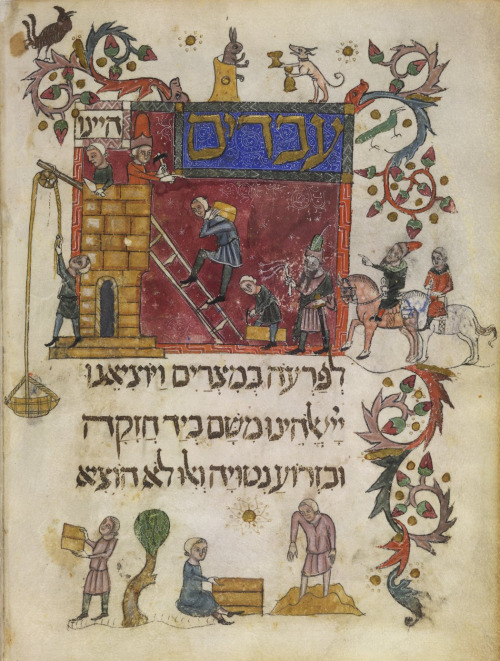 עבדים
היינו
לפרעה במצרים ויוציאנו
יי אלהינו משם ביד חזקה
ובזרוע נטויה ואלו לא הוציא